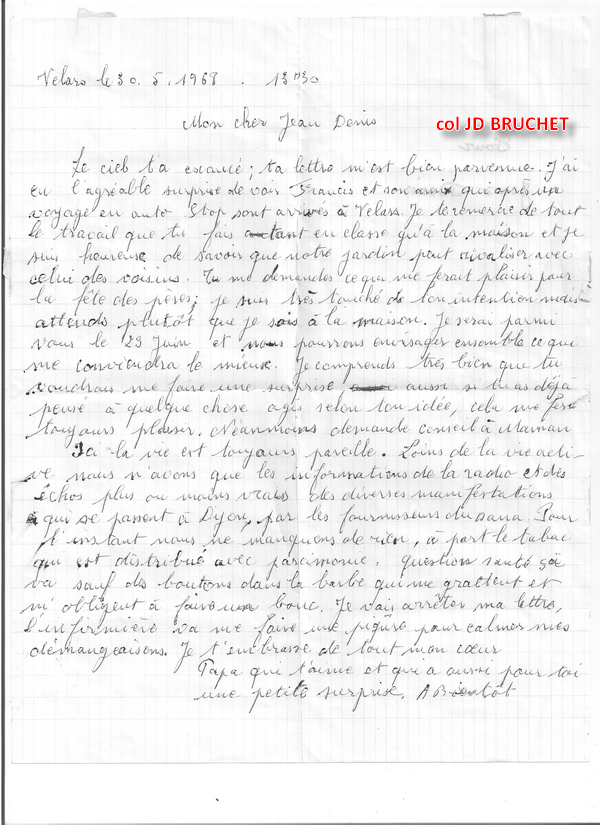 Velars le 30. 5. 1968 . 13H30
Mon cher Jean Denis
col JD BRUCHET
Le ciel t'a exaucé ; ta lettre m'est bien parvenue. J'ai
eu l'agréable surprise de voir Francis et son ami qui après un
voyage en auto Stop sont arrivés à Velars. Je te remercie de tout
le travail que tu fais autant en classe qu'à la maison et je
suis heureux de savoir que notre jardin peut rivaliser avec
celui des voisins. Tu me demandes ce qui me ferait plaisir pour
la fête des pères ; je suis très touché de ton intention mais
attends plutôt que je sois à la maison. Je serai parmi
vous le 23 Juin et nous pourrons envisager ensemble ce qui
me conviendra le mieux. Je comprends très bien que tu
voudrais me faire une surprise aussi si tu as déjà
pensé à quelque chose agis selon ton idée, cela me fera
toujours plaisir. Néanmoins demande conseil à Maman
Ici la vie est toujours pareille. Loins de la vie acti-
ve nous n'avons que les informations de la radio et des
échos plus ou moins vrais des diverses manifestations
qui se passent à Dijon, par les fournisseurs du sana. Pour
l'instant nous ne manquons de rien, à part le tabac
qui est distribué avec parcimonie. Question santé ça
va sauf des boutons dans la barbe qui me grattent et
m'obligent à faire un bouc. Je vais arrêter ma lettre,
L'infirmière va me faire une piqûre pour calmer mes
démangeaisons. Je t'embrasse de tout mon cœur
Papa qui t'aime et qui a aussi pour toi
une petite surprise. A Bientôt